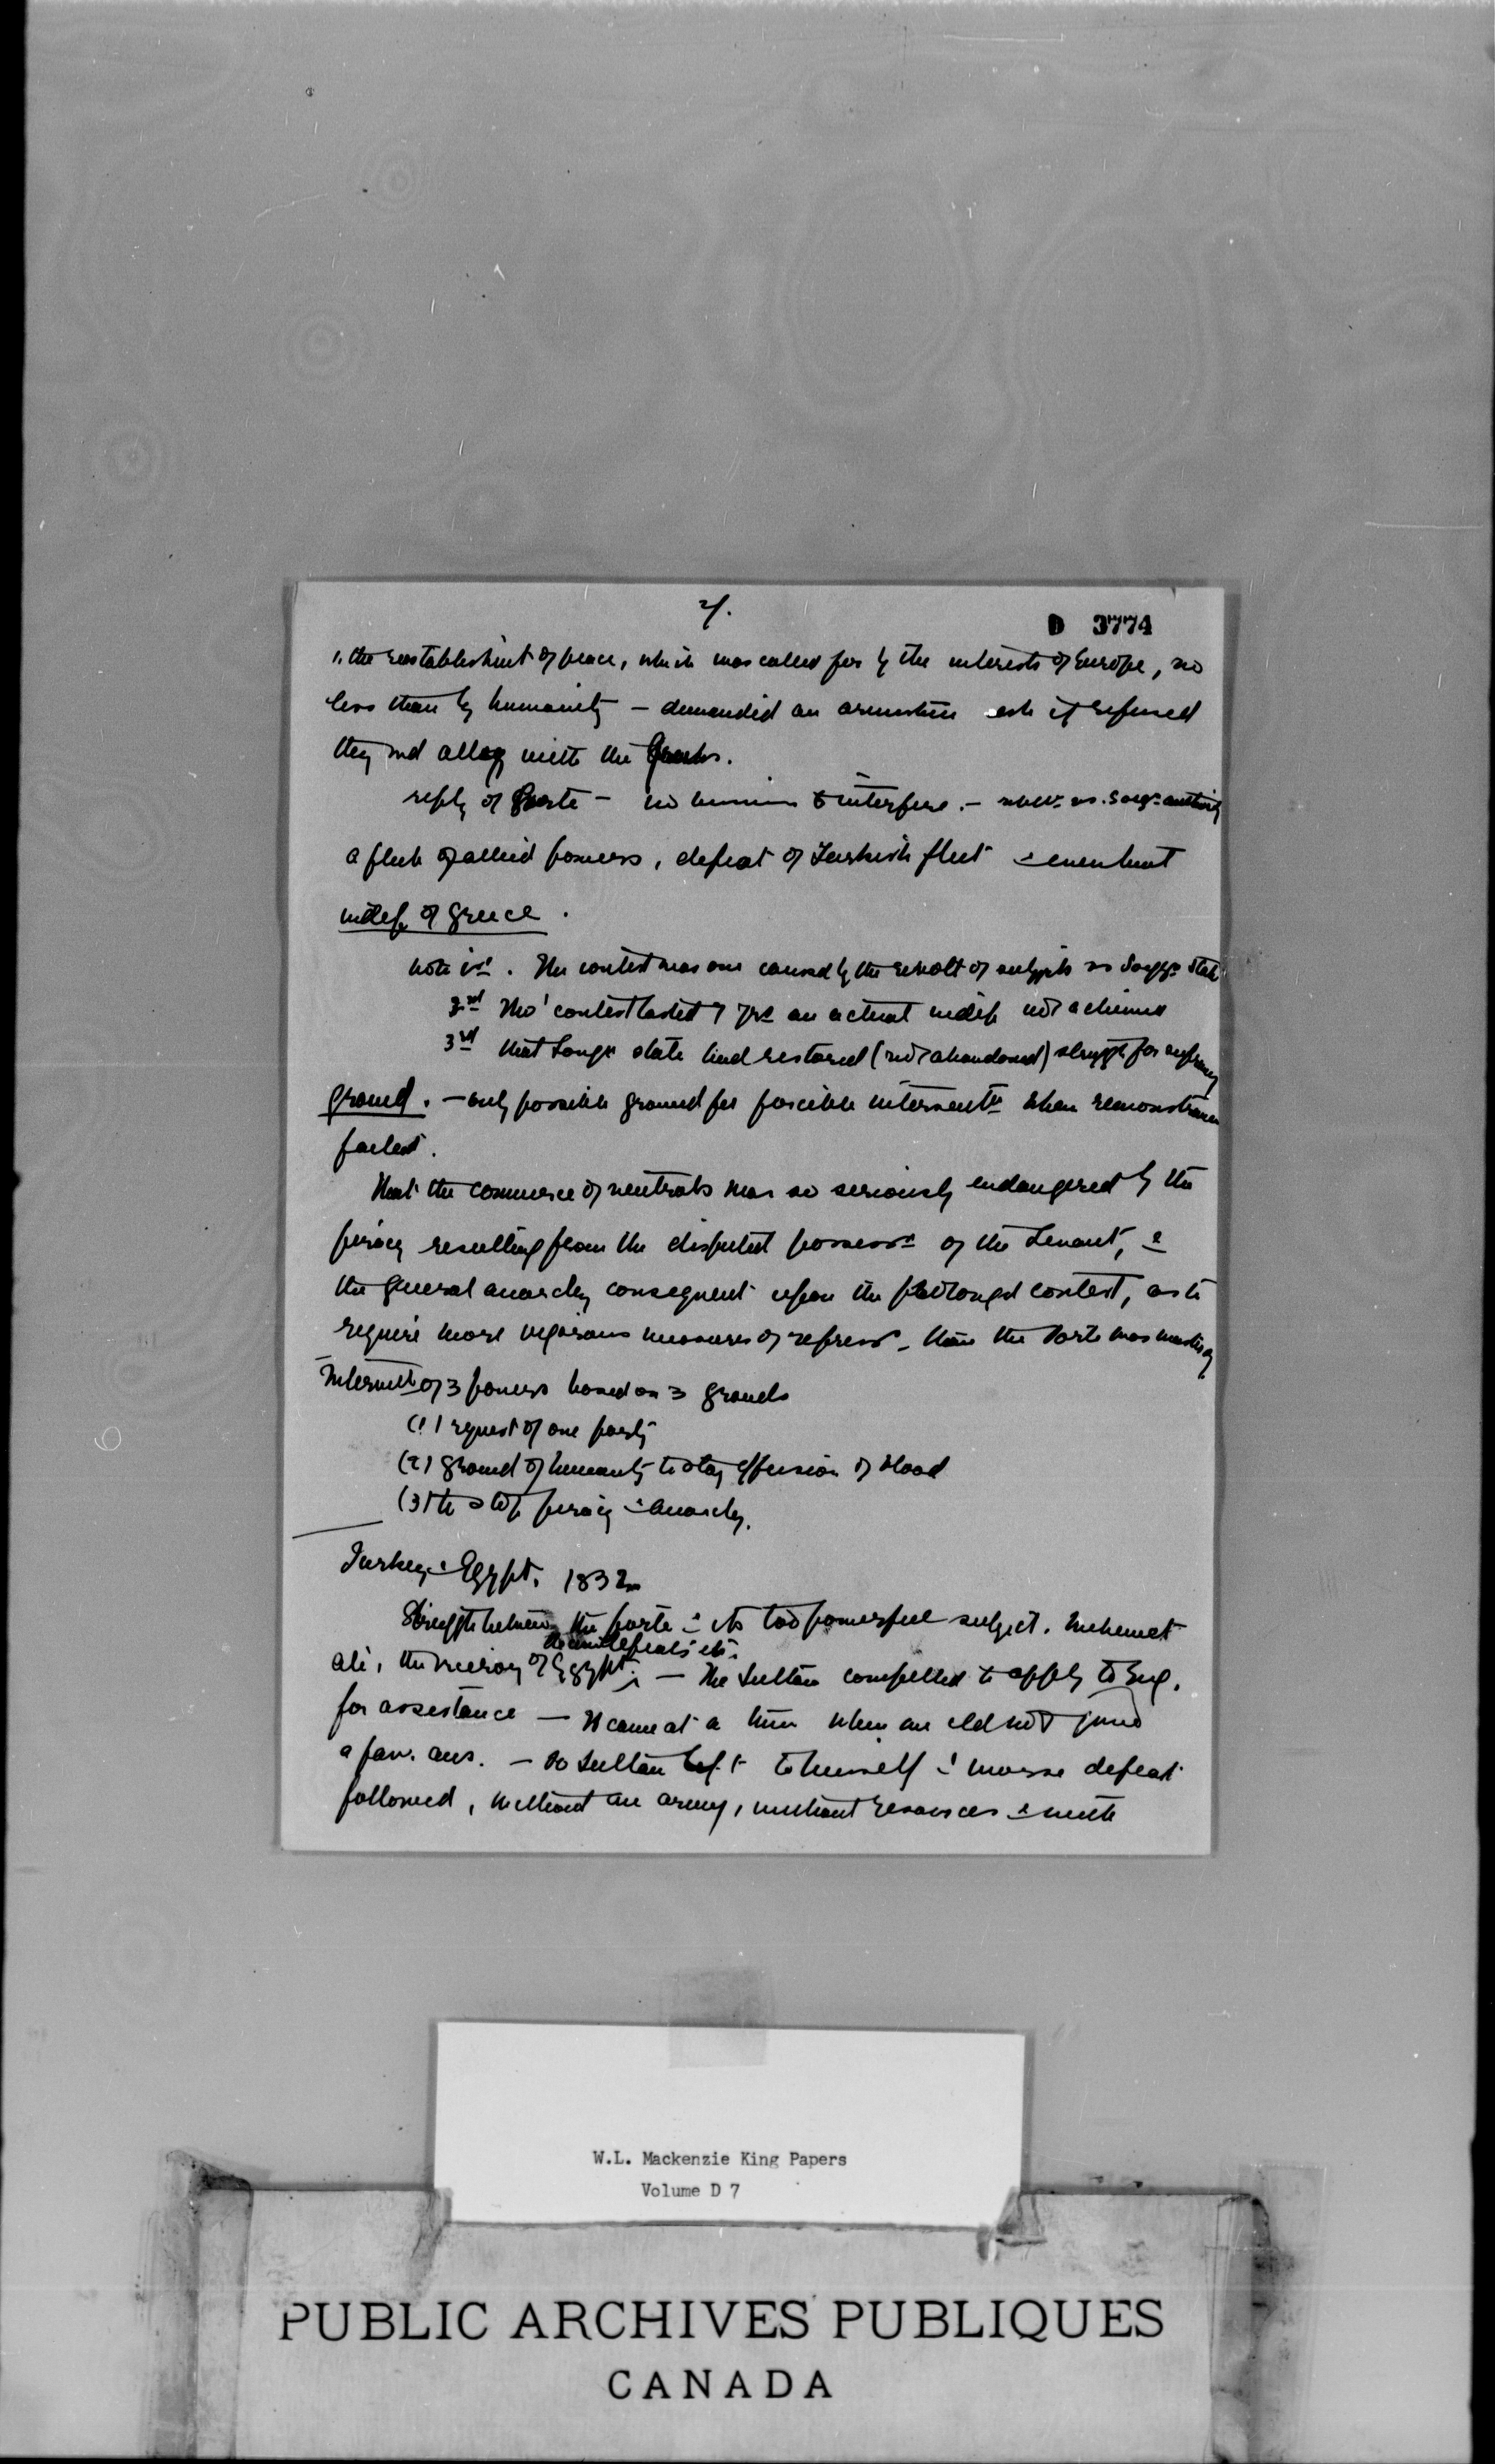 2/.
D 3774
1. the reestablishmt of peace, which was called for by the interests of Europe, no
less than by humanity — demanded an armistice and if refused
they wd ally with the Greeks.
reply of Porte — no to interfere. — Sovgn authority
a fleet of allied powers, defeat of Turkish fleet & eventual
indep. of Greece.
note 1st. The contest was one caused by the revolt of subjects vs Sovgn State
2nd Tho' contest lasted 7 yrs an actual indep not achieved
3rd that Sovgn state had restored (not abandoned) struggle for supremacy
Ground. — only possible ground for forcible interventn when remonstrance
failed.
That the commerce of neutrals was so seriously endangered by the
piracy resulting from the disputed possessn of the Levant, &
the general anarchy consequent upon the prolonged contest, as to
require more vigorous measures of repressn than the Porte was master of
Interventn of 3 powers based on 3 grounds
(1) request of one party
(2) ground of humanity to stay effusion of blood
(3) to stop piracy & anarchy.
Turkey & Egypt. 1832
Struggle between the porte & its too powerful subject. Mehemet
defeats etc.
Ali, the viceroy of Egypt. — The Sultan compelled to apply to Eng.
for assistance — It came at a time when one cld not give
a fav. ans. — So Sultan left to himself & worse defeat
followed, without an army, without resources & with
W.L. Mackenzie King Papers
Volume D 7
PUBLIC ARCHIVES PUBLIQUES
CANADA